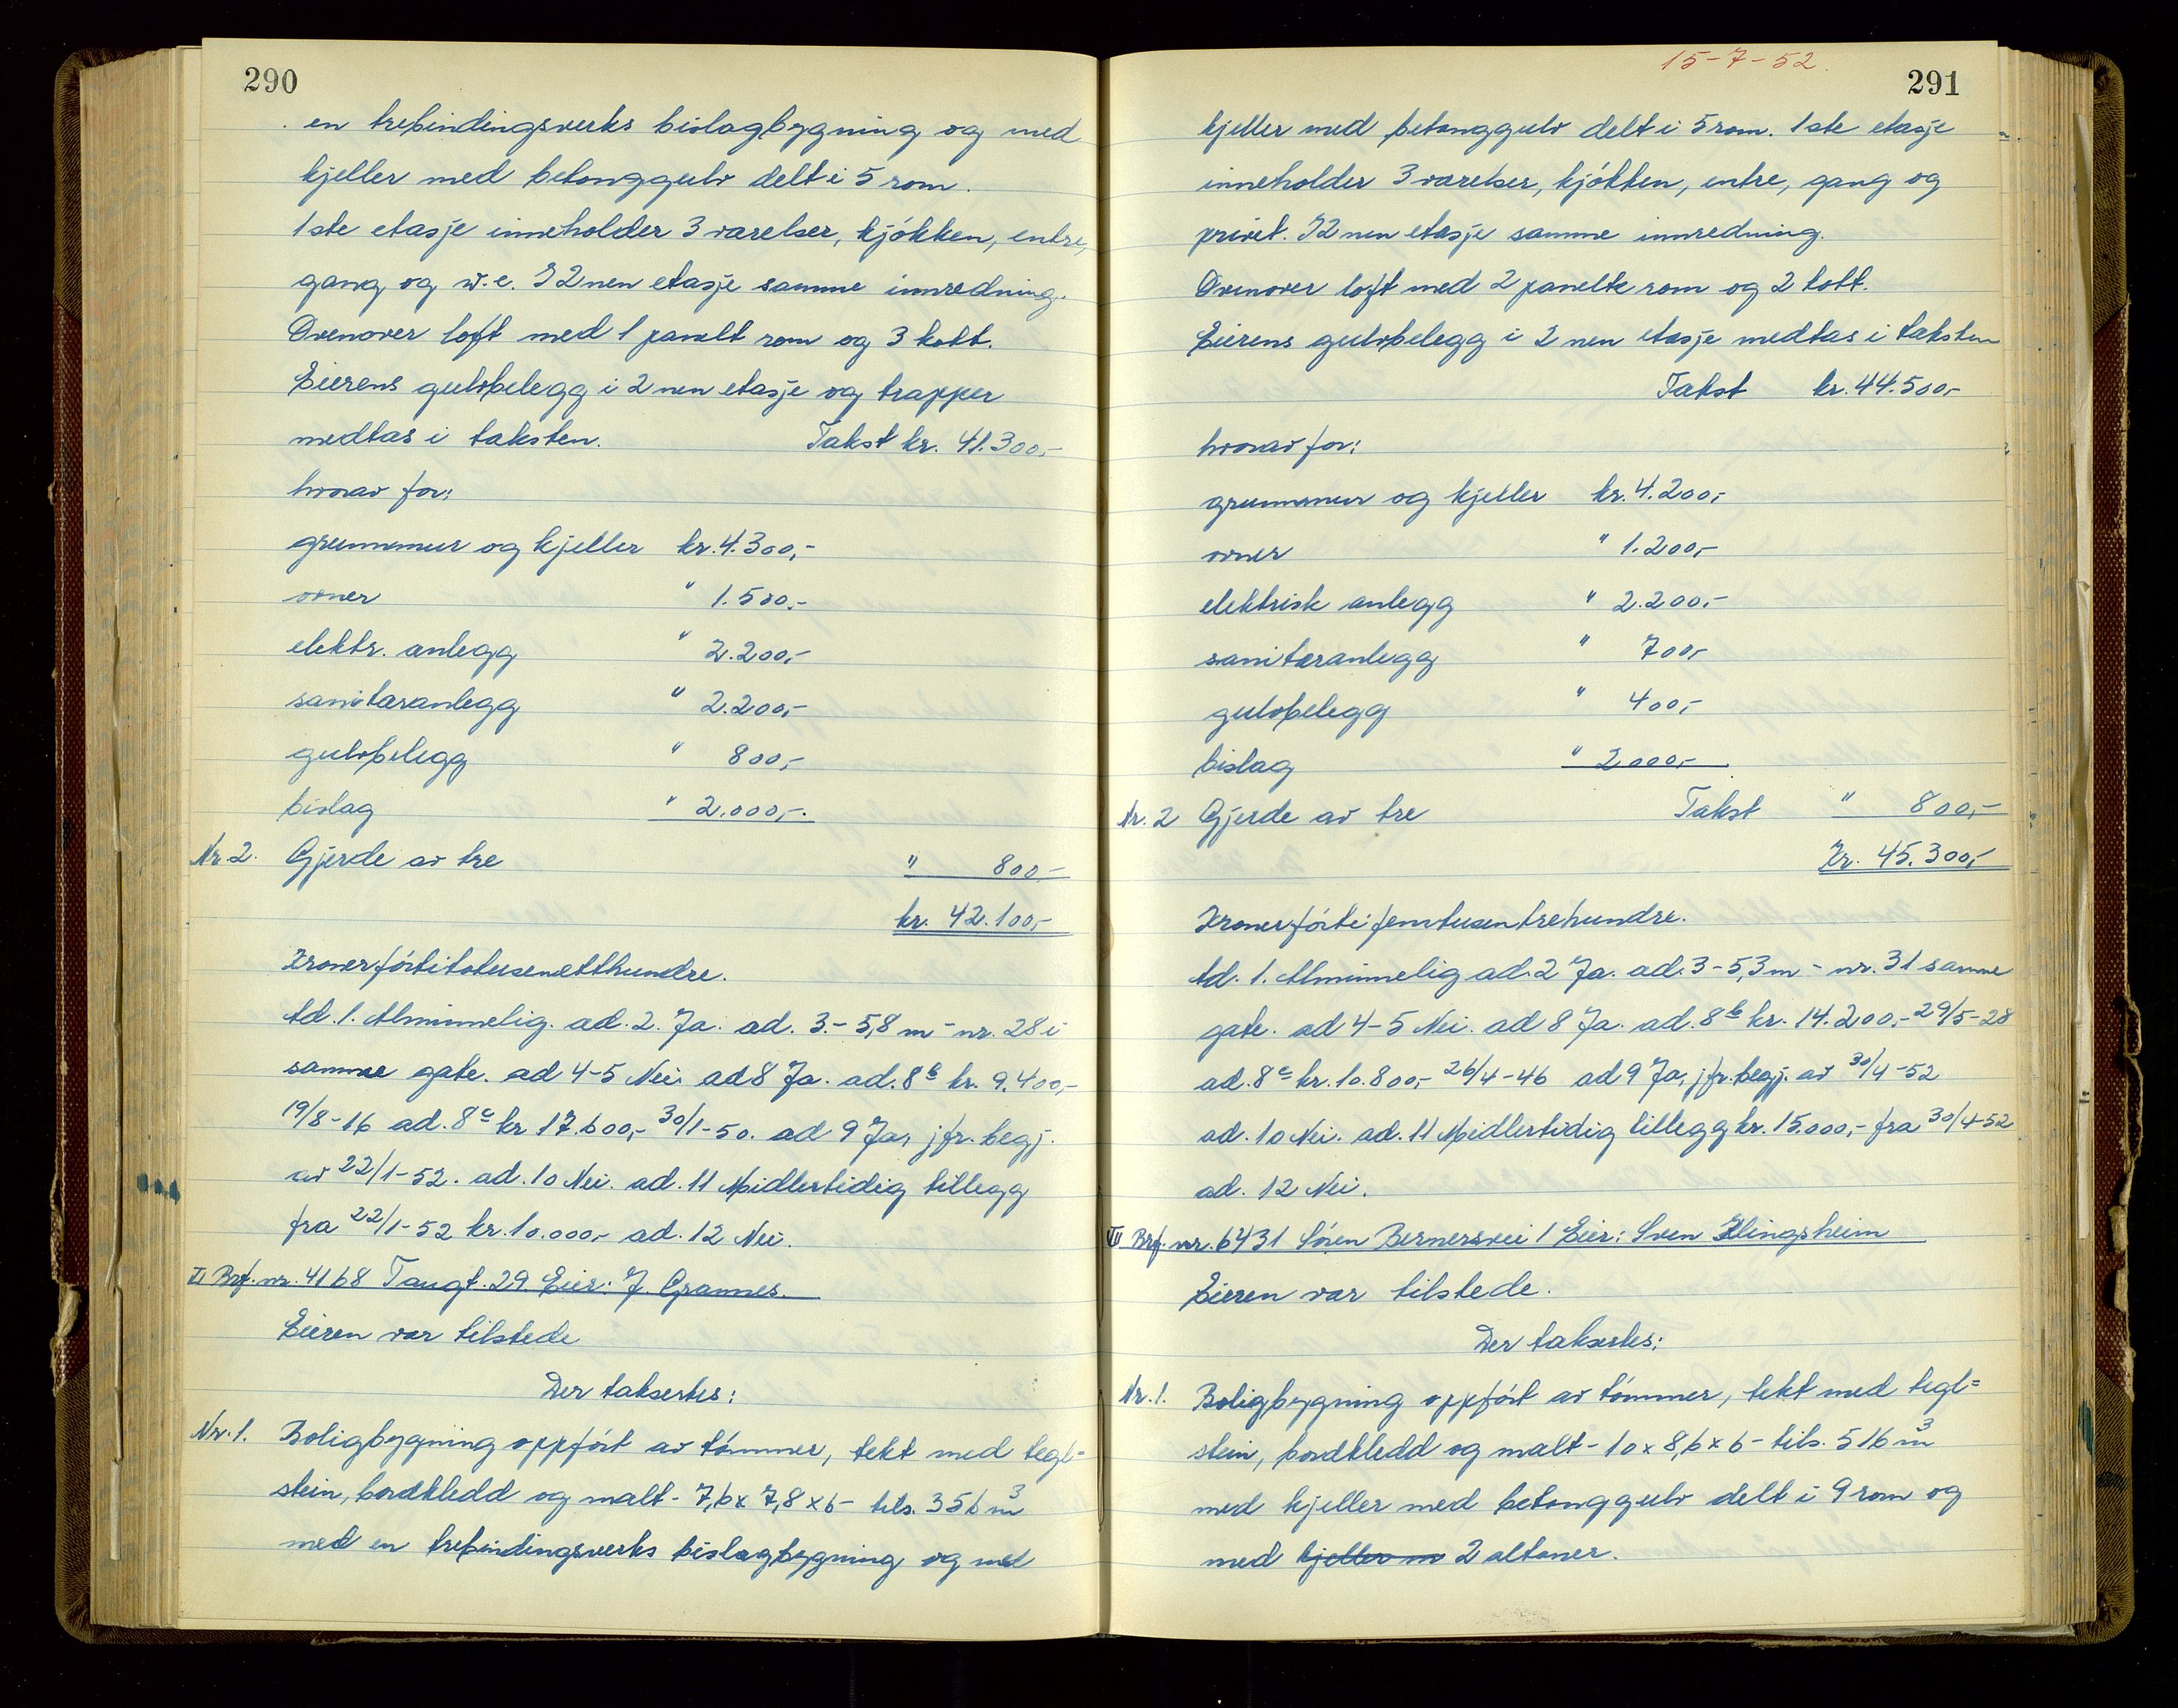 290
en trebindingsverks bislagbygning og med
kjeller med betonggulv delt i 5 rom.
1ste etasje inneholder 3 værelser, kjökken, entre,
gang og w.c. I 2nen etasje samme innredning.
Ovenover loft med 1 panelt rom og 3 kott.
Eierens gulvbelegg i 2nen etasje og trapper
medtas i taksten. Takst kr. 41.300,-
hvorav for:
grunnmur og kjeller kr. 4.300,-
ovner " 1.500.-
elektr. anlegg " 2.200,-
sanitæranlegg " 2.200,-
gulvbelegg " 800,-
bislag " 2.000,-.
Nr. 2. Gjerde av tre " 800-
kr. 42.100,-
Kronerförtitotusenetthundre.
Ad. 1. Alminnelig. ad. 2. Ja. ad. 3.- 5,8 m - nr. 28 i
samme gate. ad 4-5 Nei. ad 8 Ja. ad. 8b kr. 9.400,-
19/8-16 ad. 8c kr 17.600,- 30/1-50. ad 9 Ja, jfr. begj.
av 22/1-52. ad. 10 Nei. ad. 11 Midlertidig tillegg
fra 22/1-52 kr. 10.000,- ad. 12 Nei.
VI Brf. nr. 4168 Taugt. 29. Eier: J. Grannes.
Eieren var tilstede
Der taksertes:
Nr. 1. Boligbygning oppfört av tömmer, tekt med tegl=
stein, bordkledd og malt - 7,6 x 7,8 x 6 - tils. 356 m3
med en trebindingsverks bislagbygning og med
15-7-52.
291
kjeller med betonggulv delt i 5 rom. 1ste etasje
inneholder 3 værelser, kjökken, entre, gang og
privet. I 2nen etasje samme innredning.
Ovenover loft med 2 panelte rom og 2 kott.
Eierens gulvbelegg i 2nen etasje medtas i taksten
Takst kr. 44.500,-
hvorav for:
grunnmur og kjeller kr. 4.200,-
ovner " 1.200,-
elektrisk anlegg " 2.200,-
sanitæranlegg " 700,-
gulvbelegg " 400,-
bislag " 2000,-
Nr. 2 Gjerde av tre Takst " 800,-
Kr. 45.300,-
Kronerförtifemtusentrehundre.
Ad. 1. Alminnelig ad. 2 Ja. ad. 3 - 5,3 m - nr. 31 samme
gate. ad 4-5 Nei. ad 8 Ja. ad. 8b kr. 14.200,- 29/5-28
ad. 8c kr. 10.800,- 26/4-46 ad 9 Ja, jfr. begj. av 30/4-52
ad. 10 Nei. ad. 11 Midlertidig tillegg kr. 15.000,- fra 30/4-52
ad. 12 Nei.
VII Brf. nr. 6431 Sören Bernersvei 1 Eier: Sven Klingsheim
Eieren var tilstede.
Der taksertes:
Nr. 1. Boligbygning oppfört av tömmer, tekt med tegl=
stein, bordkledd og malt - 10 x 8,6 x 6 - tils. 516 m3
med kjeller med betonggulv delt i 9 rom og
med kjeller m 2 altaner.